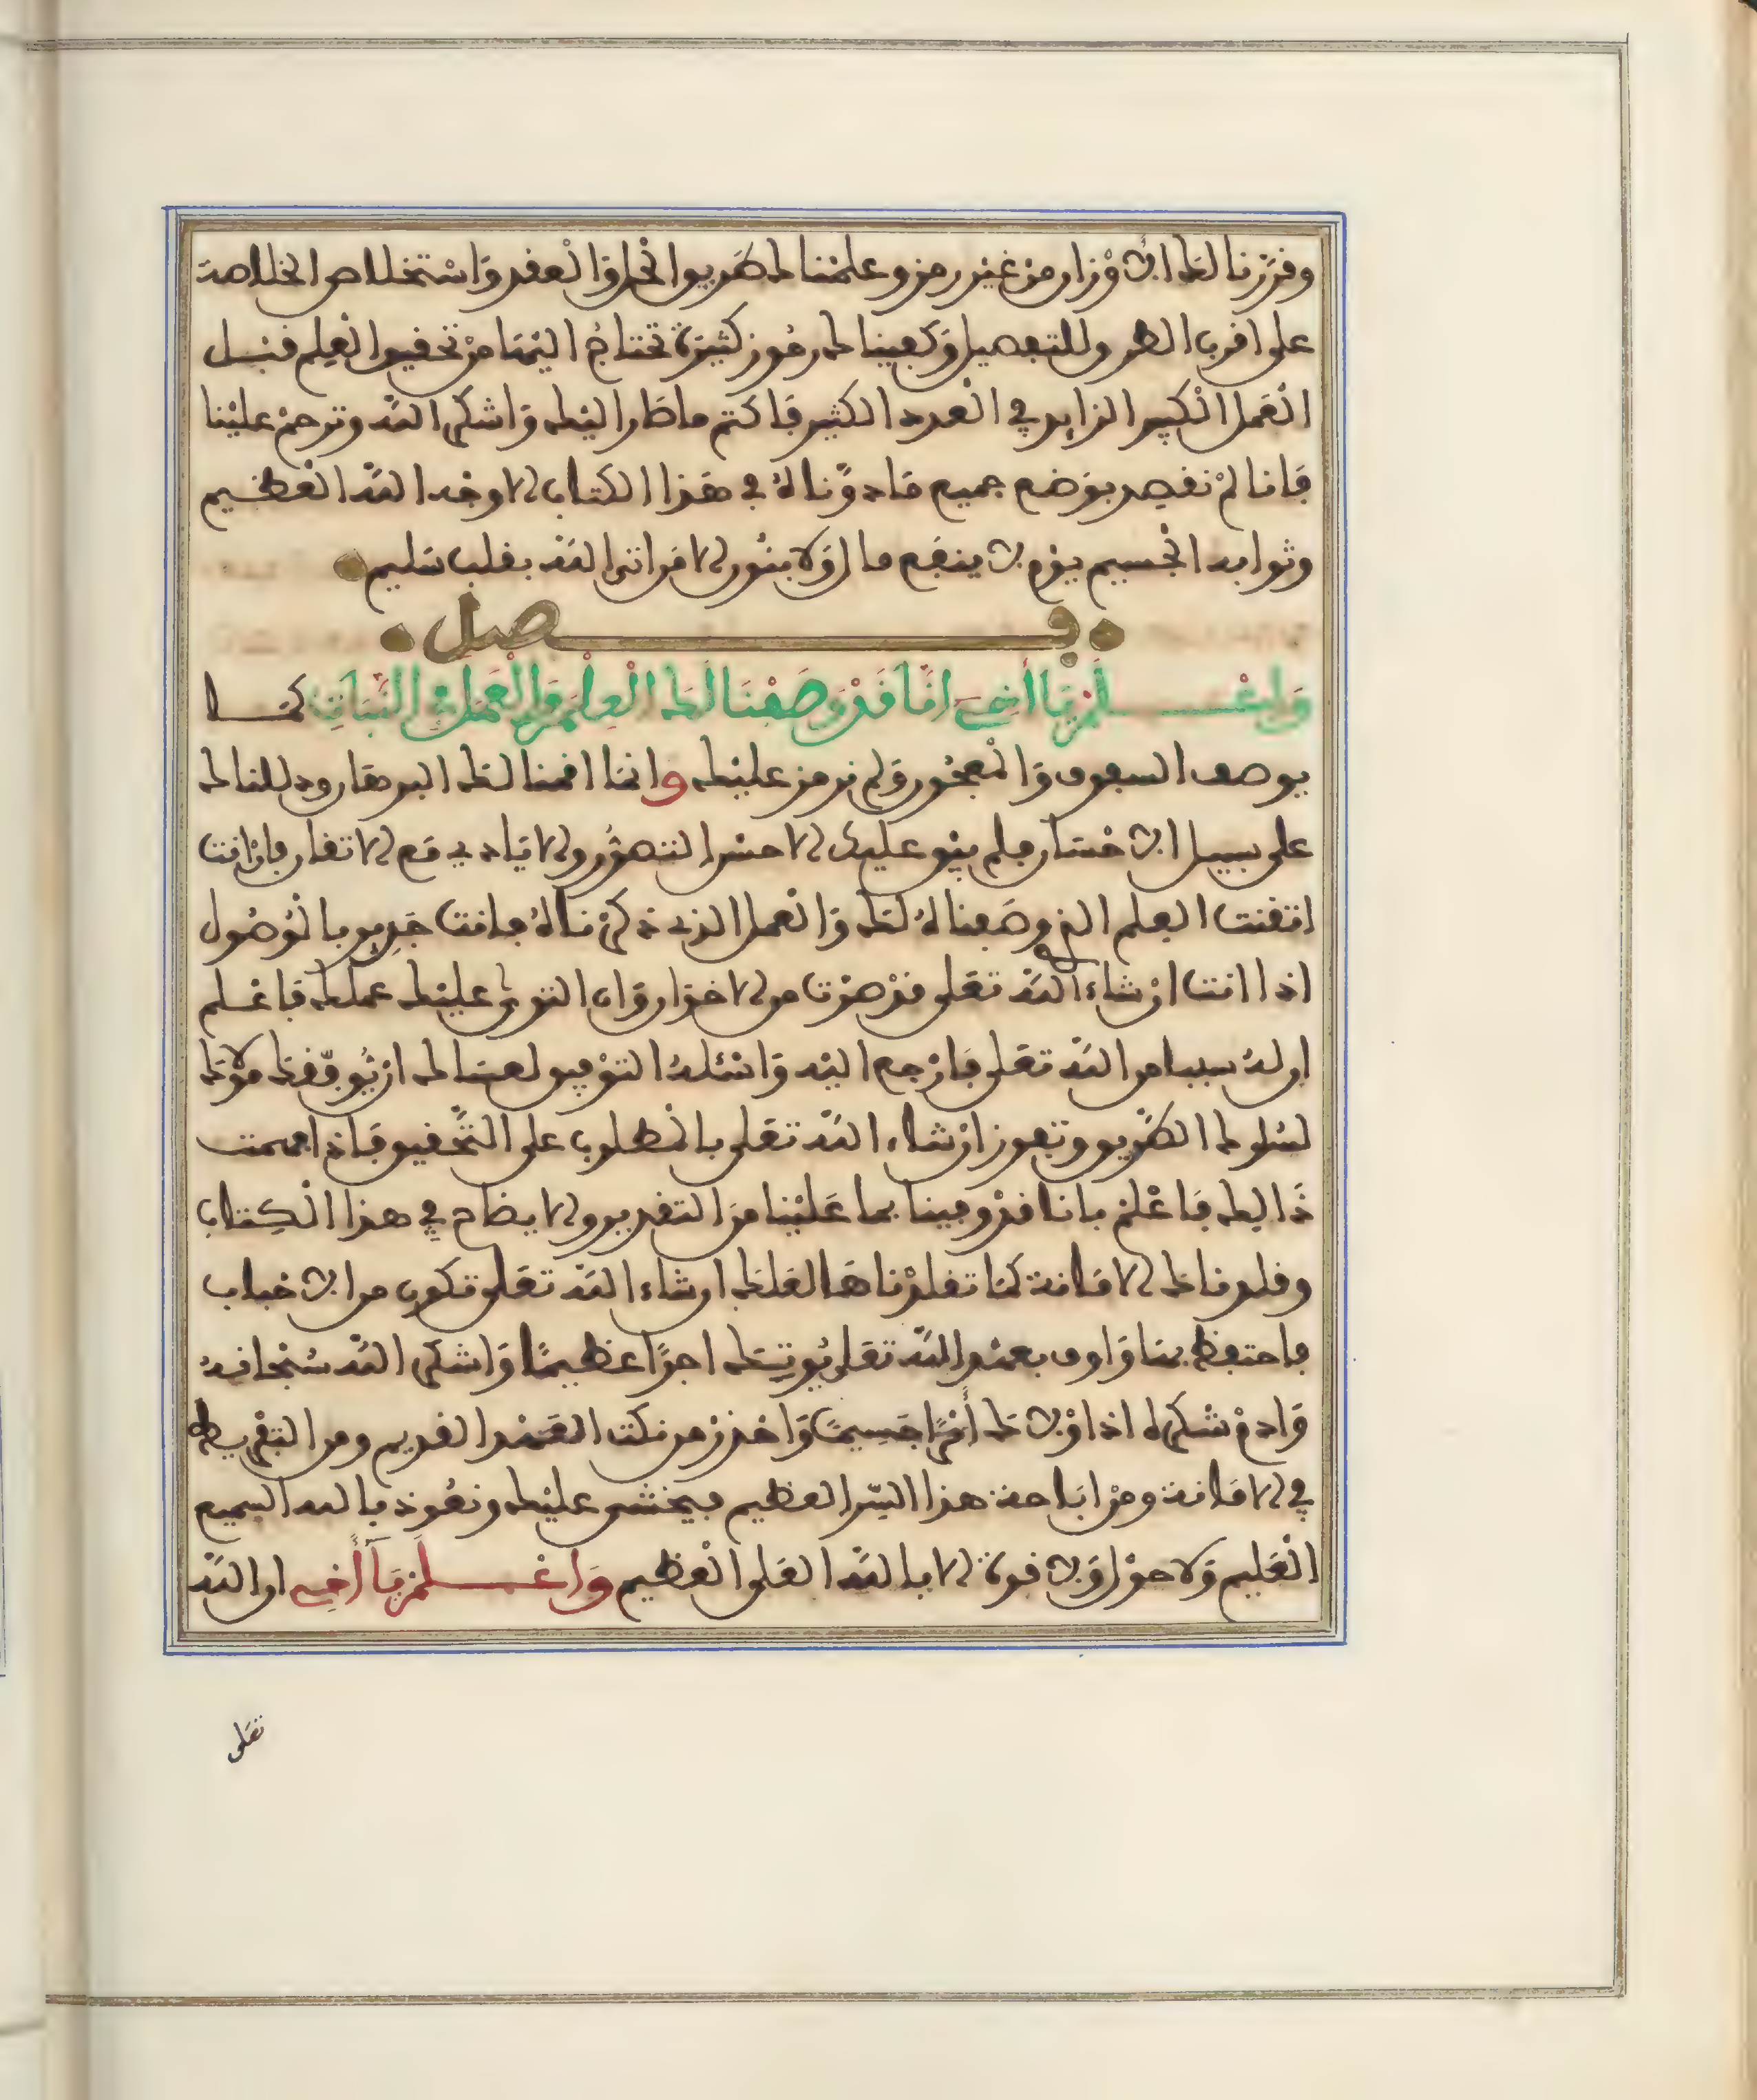 وقررنا لك الاوزان من غير رمز وعلمناك طريق الحل والعقد واستخلاص الخلاصة
على اقرب الطرق للتفصيل وكفيناك رموز كثيرة تحتاج اليها من تحقيق العلم قبل
العمل الكبير الزايد في العدد الكثير فاكتم ما صار اليك واشكر الله وترحم علينا
فانا لم نقصد بوضع جميع ما دوناه في هذا الكتاب الا وجه الله العظيم
وثوابه الجسيم يوم لا ينفع مال ولا بنون الا من اتى الله بقلب سليم
فصل
واعلم يا أخي انا قد وصفنا لك العلم والعمل في النبات كما
يوصف السفوف والمعجون ولم نرمز عليك وانما اقمنا لك البرهان ودللناك
على سبيل الاختصار فلم يبق عليك الا حسن التصور والايادي مع الاتقان فان انت
اتقنت العلم الذي وصفناه لك والعمل الذي ذكرناه فانت جدير بالوصول
اذا انت ان شاء الله تعلى قد صرت من الاخوان وان التوى عليك عملك فاعلم
ان له سببا من الله تعلى فارجع اليه واسئله التوفيق لعساك ان يوفقك مولاك
لسلوك الطريق وتفوز ان شاء الله تعلى بالمطلوب على التحقيق فاذا فهمت
ذالك فاعلم باننا قد وفينا بما علينا من التقدير والايضاح في هذا الكتاب
وقلدناك الامانة كما تقلدناها لعلك ان شاء الله تعلى تكون من الاحباب
فاحتفظ بها واوف بعهد الله تعلى يوتيك اجرا عظيما واشكر الله سبحانه
وادم شكره اذ اولاك أمرا جسيما واحذر من نكث العهد القديم ومن التفريط
في الامانة ومن اباحة هذا السر العظيم فيخشى عليك ونعوذ بالله السميع
العليم ولا حول ولا قوة الا بالله العلي العظيم واعلم يا أخي ان الله
تعلى